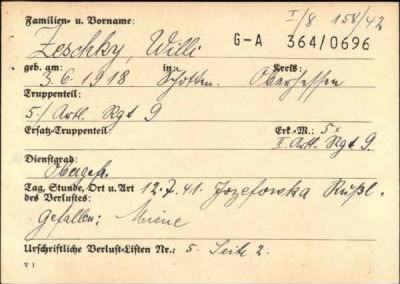 Familien- u. Vorname: I/8 158/42
Zeschky, Willi G-A 364/0696
geb. am: in: Kreis:
3.6.1918 Schotten. Oberhessen
Truppenteil:
5./Artl. Rgt 9
Ersatz-Truppenteil: Erk.-M.: 5 x
II. Artl. Rgt 9.
Dienstgrad:
Obergefr.
Tag, Stunde, Ort u. Art 12.7.41. Jozefowska Rußl.
des Verlustes:
Gefallen: Miene
Urschriftliche Verlust-Listen Nr.: 5. Seite 2.
V 1